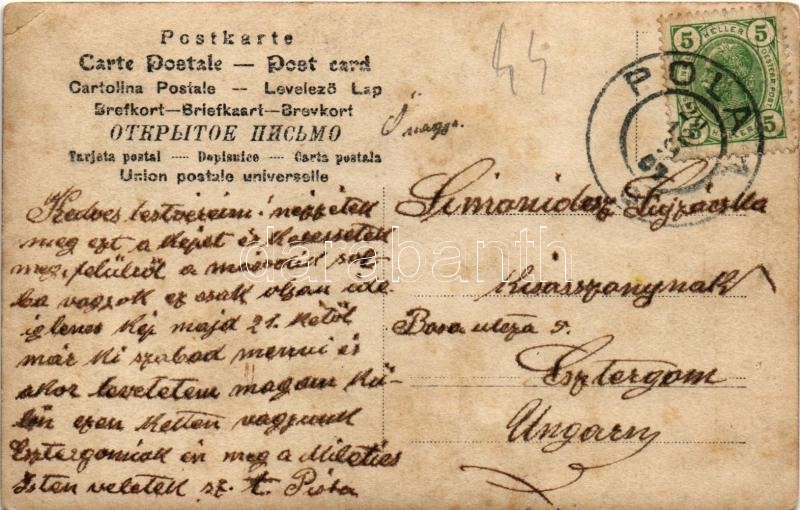 Postkarte
Carte Postale — Post card
Cartolina Postale -- Levelező Lap
Brefkort—Briefkaart—Brevkort
ОТКРЫТОЕ ПИСЬМО
Tarjeta postal --- Dopisnice --- Carta postala
Union postale universelle
44
Ő nagys.
5 HELLER 5
5 5
POLA
07
Kedves testvéreim! nézzétek
meg ezt a képet és keressetek
meg felülről a második sor-
ba vagyok ez csak olyan ide
iglenes kép majd 21. kétől
már ki szabad menni és
akor levetetem magam kü-
lön ezen ketten vagyunk
Esztergomiak én meg a Miletics
Isten veletek sz. t. Pista
Simonidesz
kisasszonynak
utcza 5.
Esztergom
Ungarn
darabanth.com